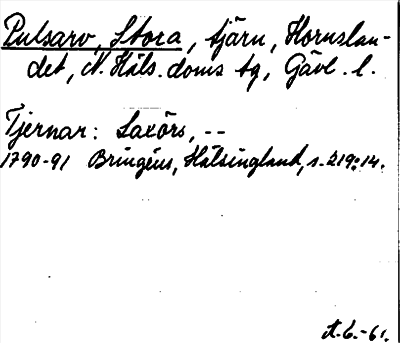 Pulsarv, Stora, tjärn, Hornslan-
det, N. Häls. doms tg, Gävl. l.
Tjernar: Laxörs, --
1790-91 Bringéus, Hälsingland, s. 219:14.
A.L.-61.